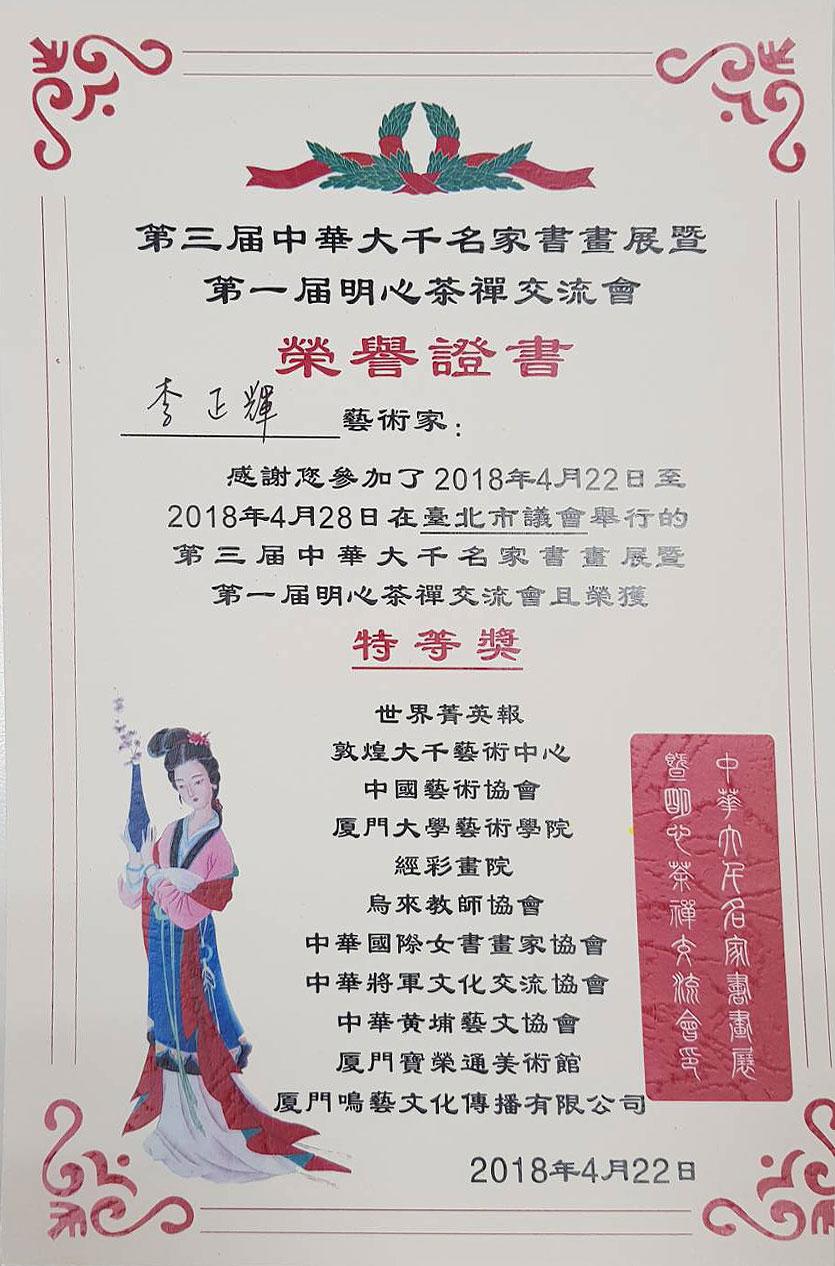 第三届中華大千名家書畫展暨
第一届明心茶禪交流會
榮譽證書
李正輝 藝術家：
感謝您參加了2018年4月22日至
2018年4月28日在臺北市議會舉行的
第三届中華大千名家書畫展暨
第一届明心茶禪交流會且榮獲
特等獎
世界菁英報
敦煌大千藝術中心
中國藝術協會
厦門大學藝術學院
經彩畫院
烏來教師協會
中華國際女書畫家協會
中華將軍文化交流協會
中華黄埔藝文協會
厦門寶榮通美術館
厦門鳴藝文化傳播有限公司
中華大千名家書畫展
暨明心茶禪交流會印
2018年4月22日